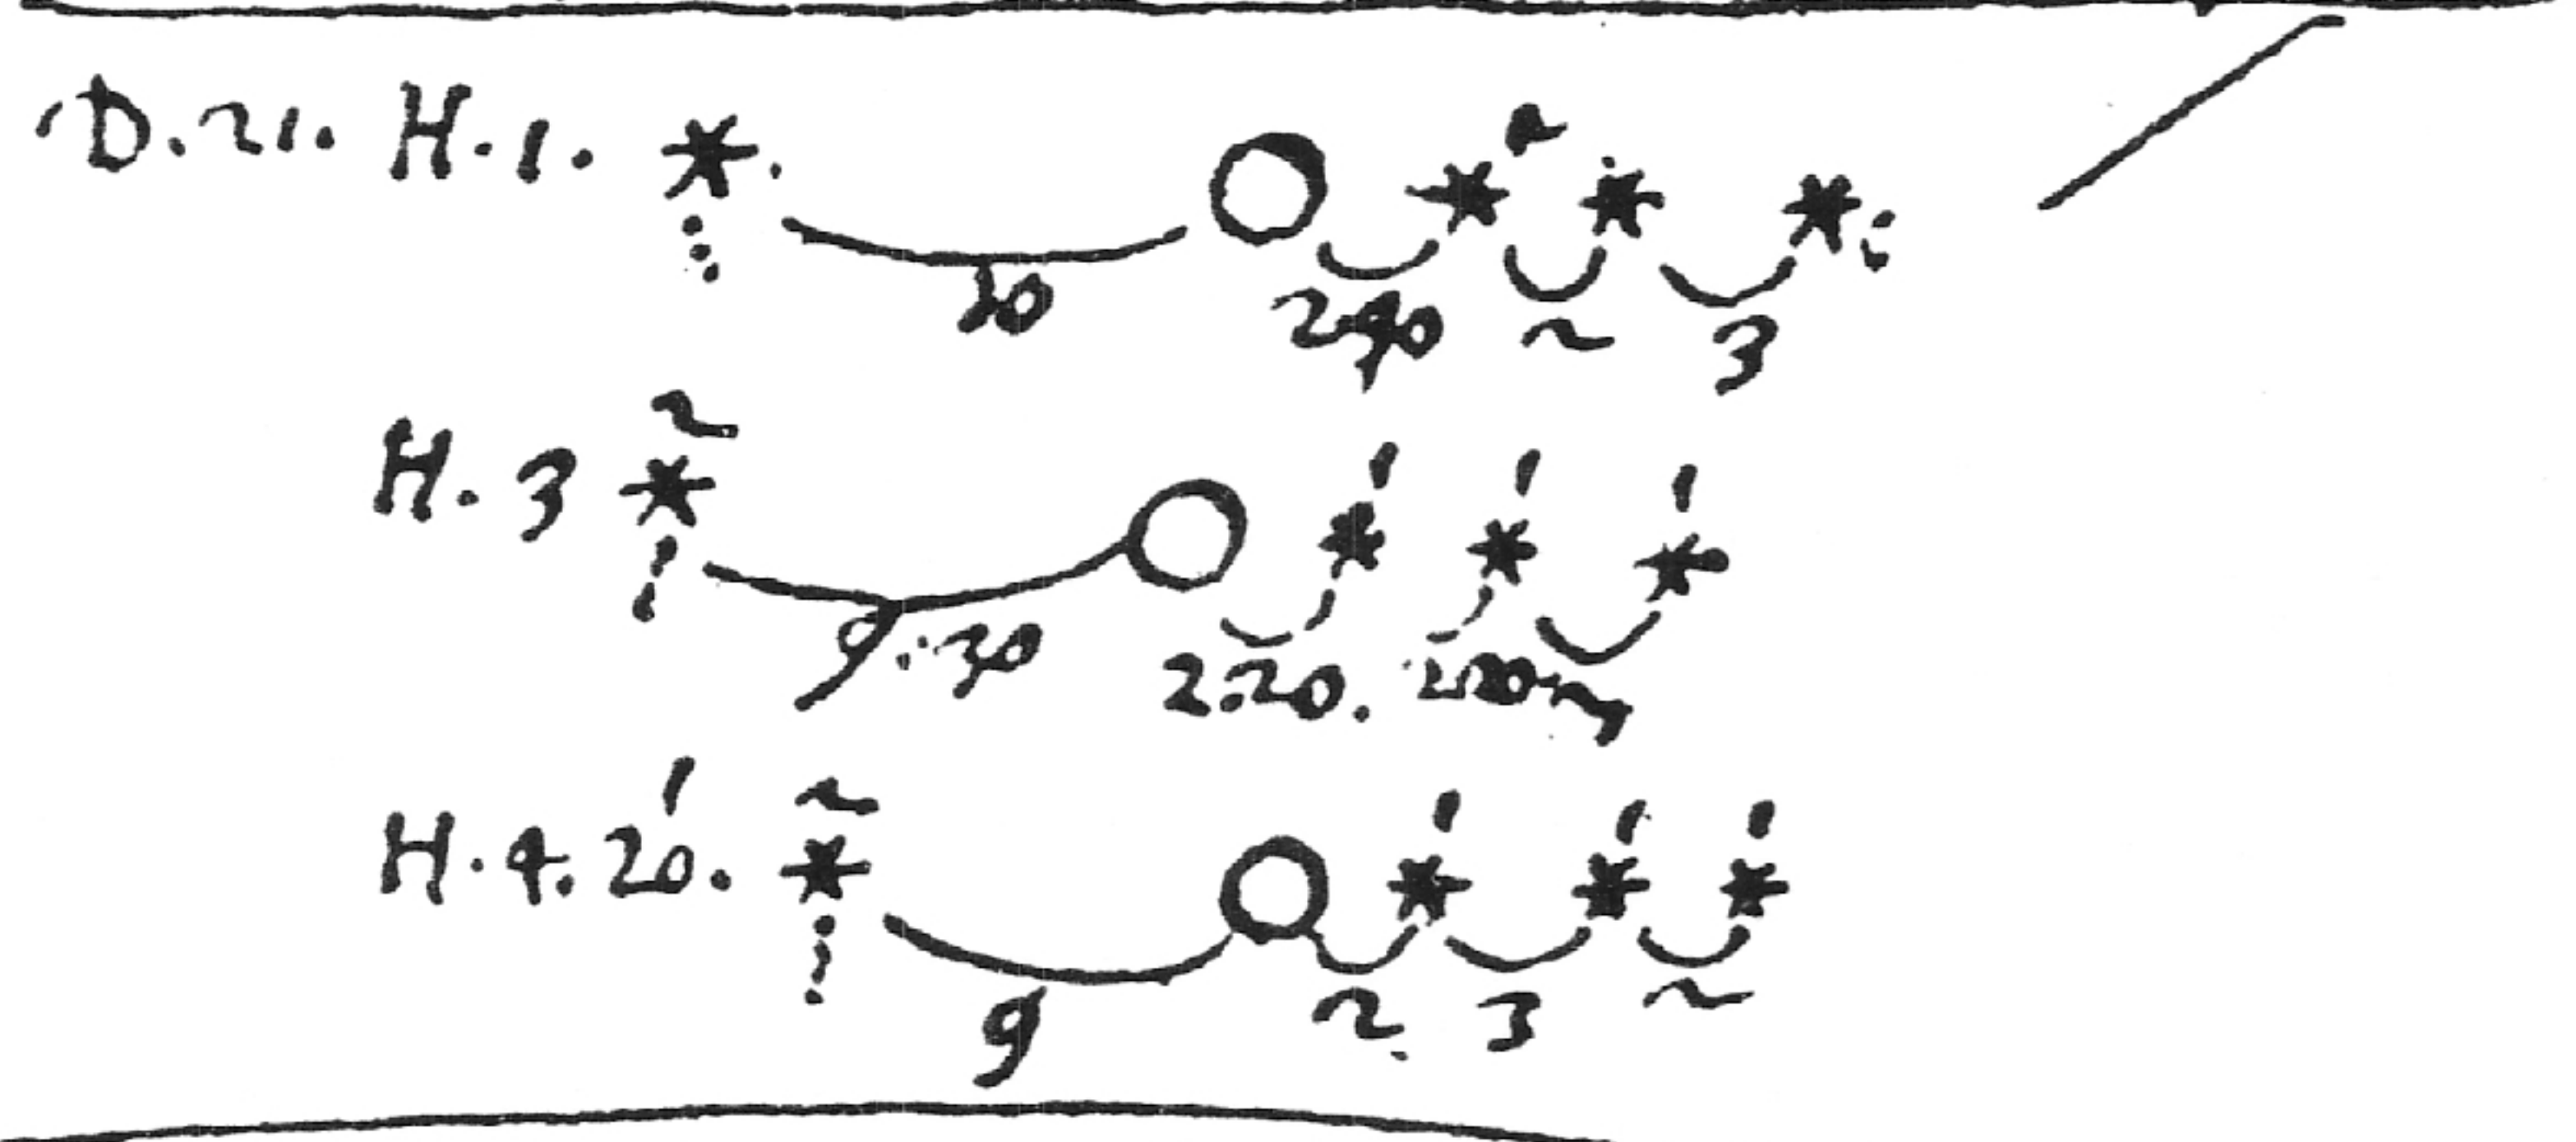 D. 21. H. 1.
10 2 40 2 3
H. 3 2
9 : 30 2:20.
H. 4. 20. 2
9 2. 3 2